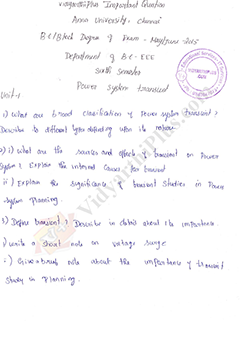 Vidyarthiplus Important Question
Anna University - Chennai
BE/BTech Degree of Exam - May/June - 2015
Department of BE-EEE
Sixth Semester
Power System Transient
Unit-1
1) i) What are broad classification of Power System Transient?
Describe its different types depending upon its
2) i) What are the sources and effects of transient on Power
System? Explain the internal causes for transient
ii) Explain the significance of transient Studies in Power
System planning.
3) Define transient? Describe in detail about the importance.
i) write a short note on voltage surge
ii) Give brief note about the importance of transient
Study in Planning.